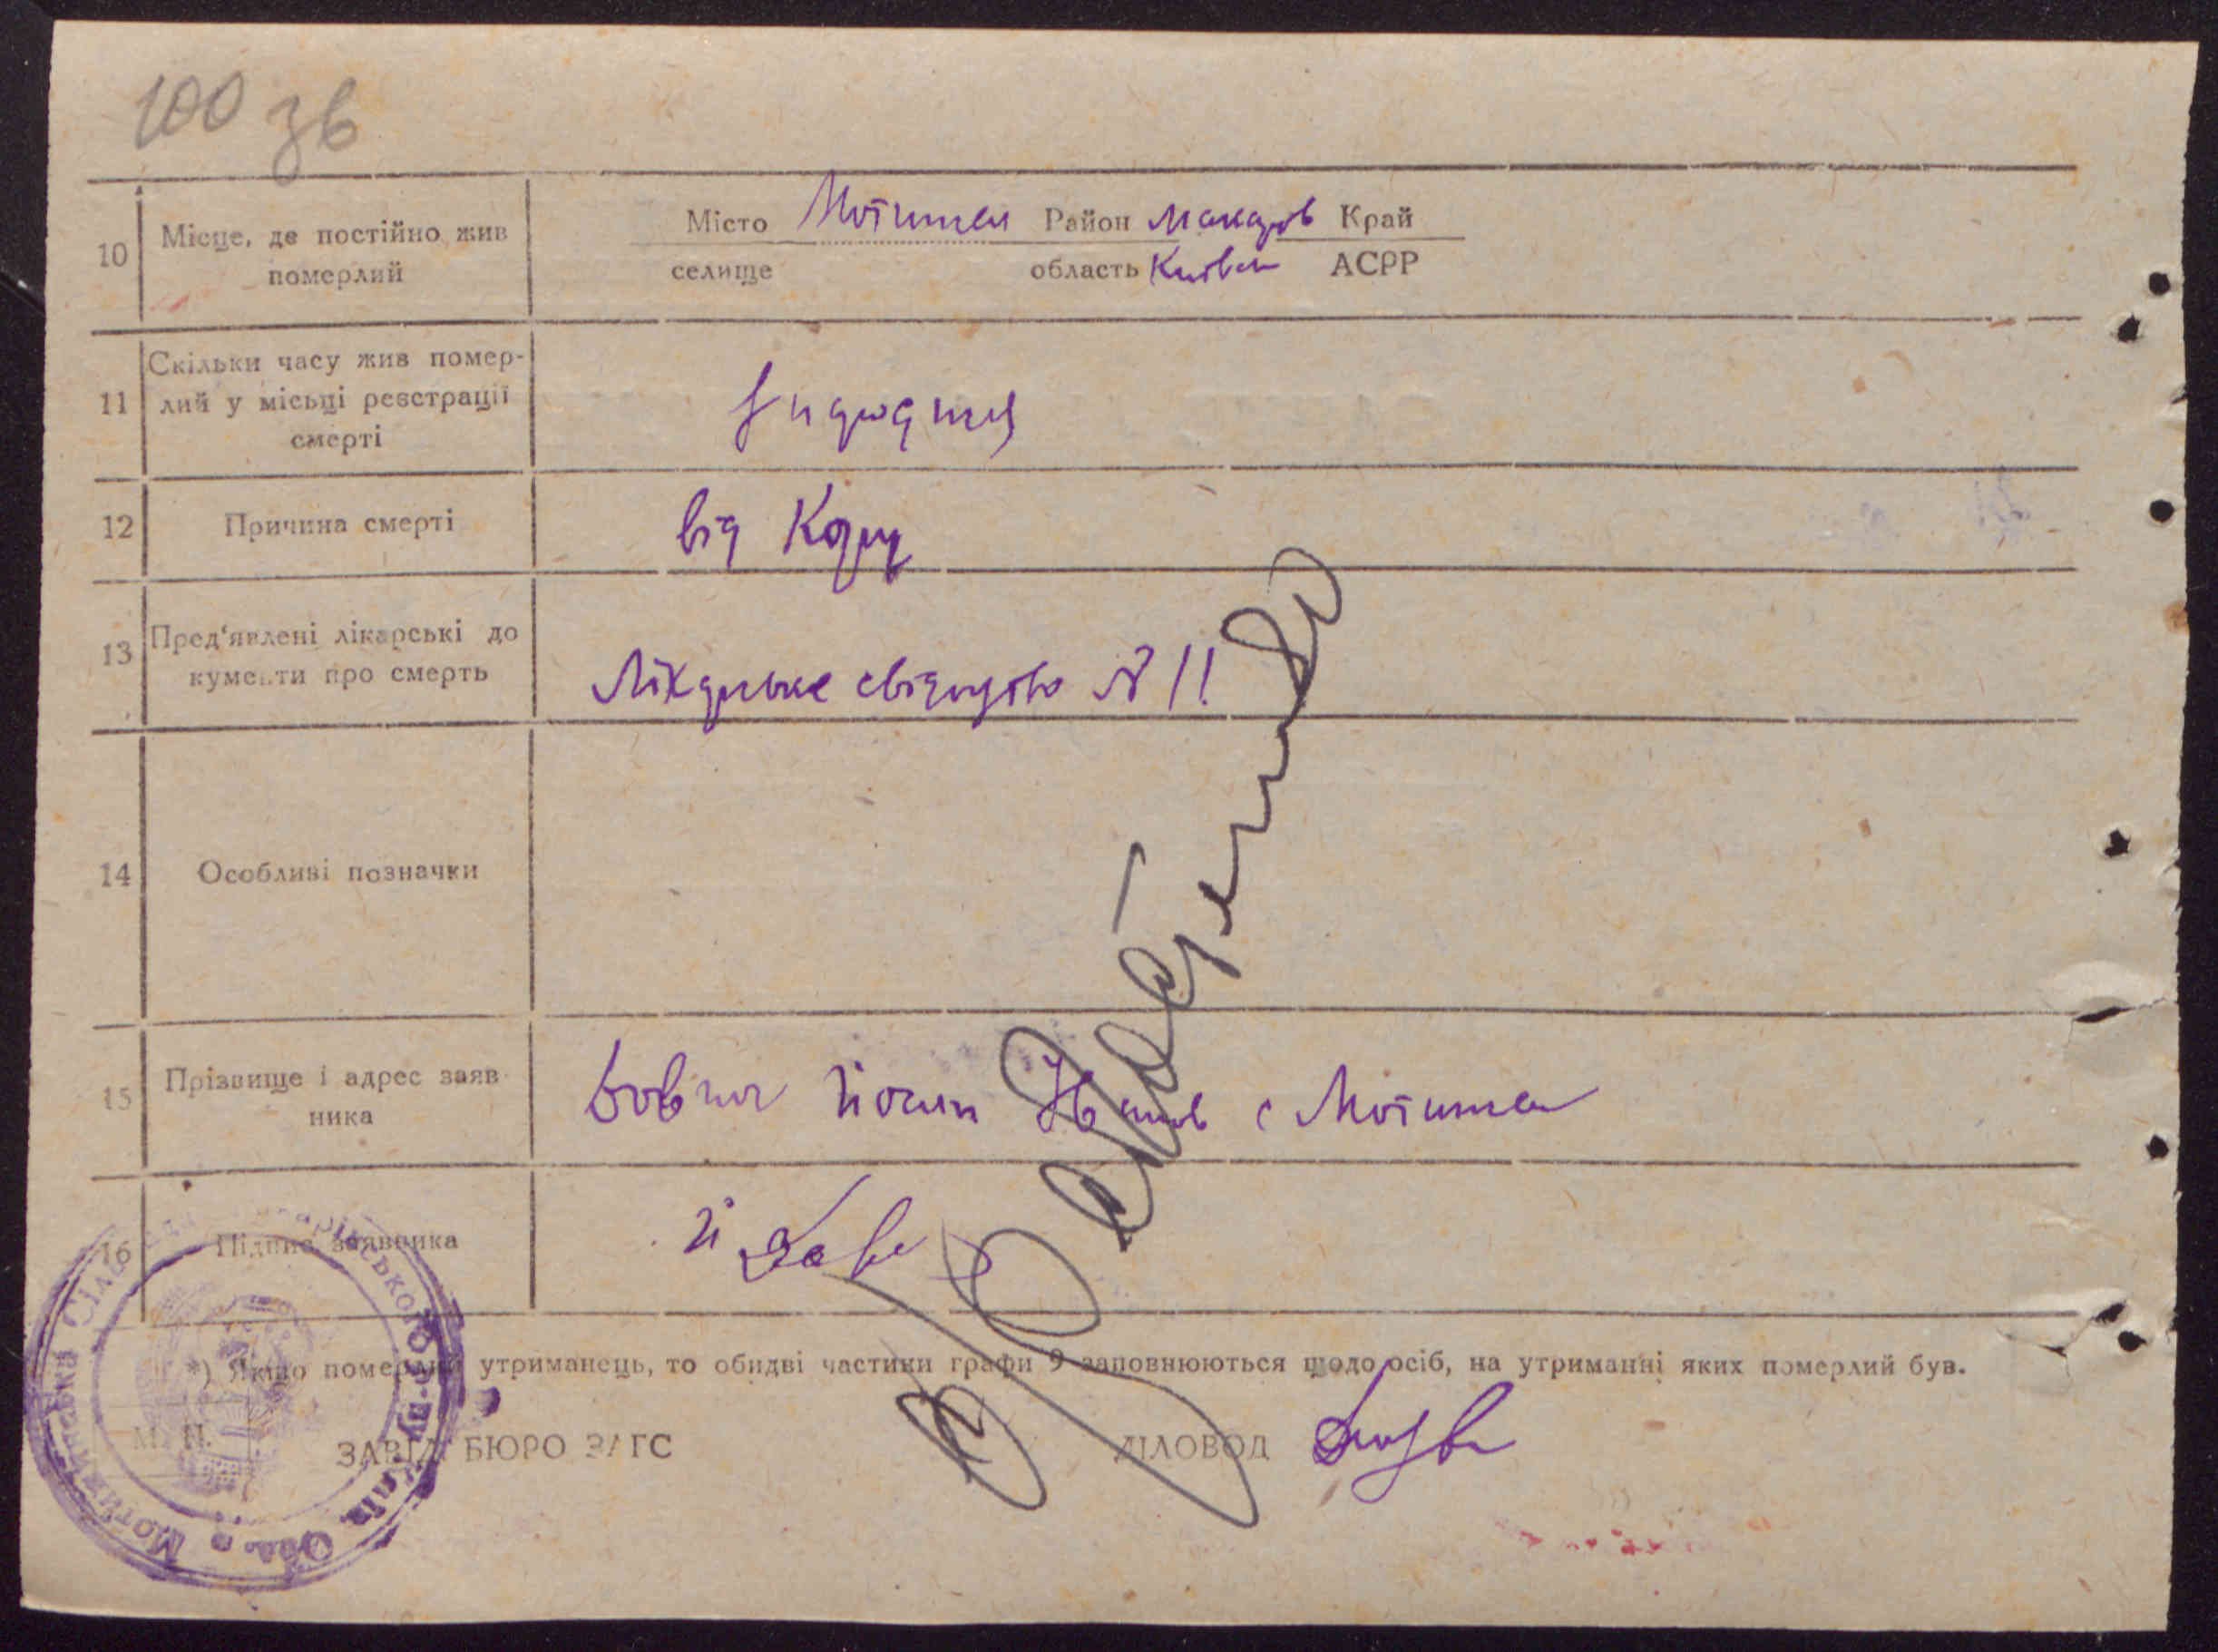 100 зв
10 Місце, де постійно жив померлий
Місто Мотижин Район Макарів Край
селище область Київськ АСРР
11 Скільки часу жив помер-
лий у місьці реєстрації
смерті
12 Причина смерті
від Кору
13 Пред'явлені лікарські до
кументи про смерть
Лікарське свідоцтво № 11
14 Особливі позначки
15 Прізвище і адрес заяв-
ника
Йосип Іванов с Мотижин
16 Підпис заявника
*) Якщо померлий утриманець, то обидві частини графи 9 заповнюються щодо осіб, на утриманні яких померлий був.
М. П.
ЗАВІД. БЮРО ЗАГС ДІЛОВОД